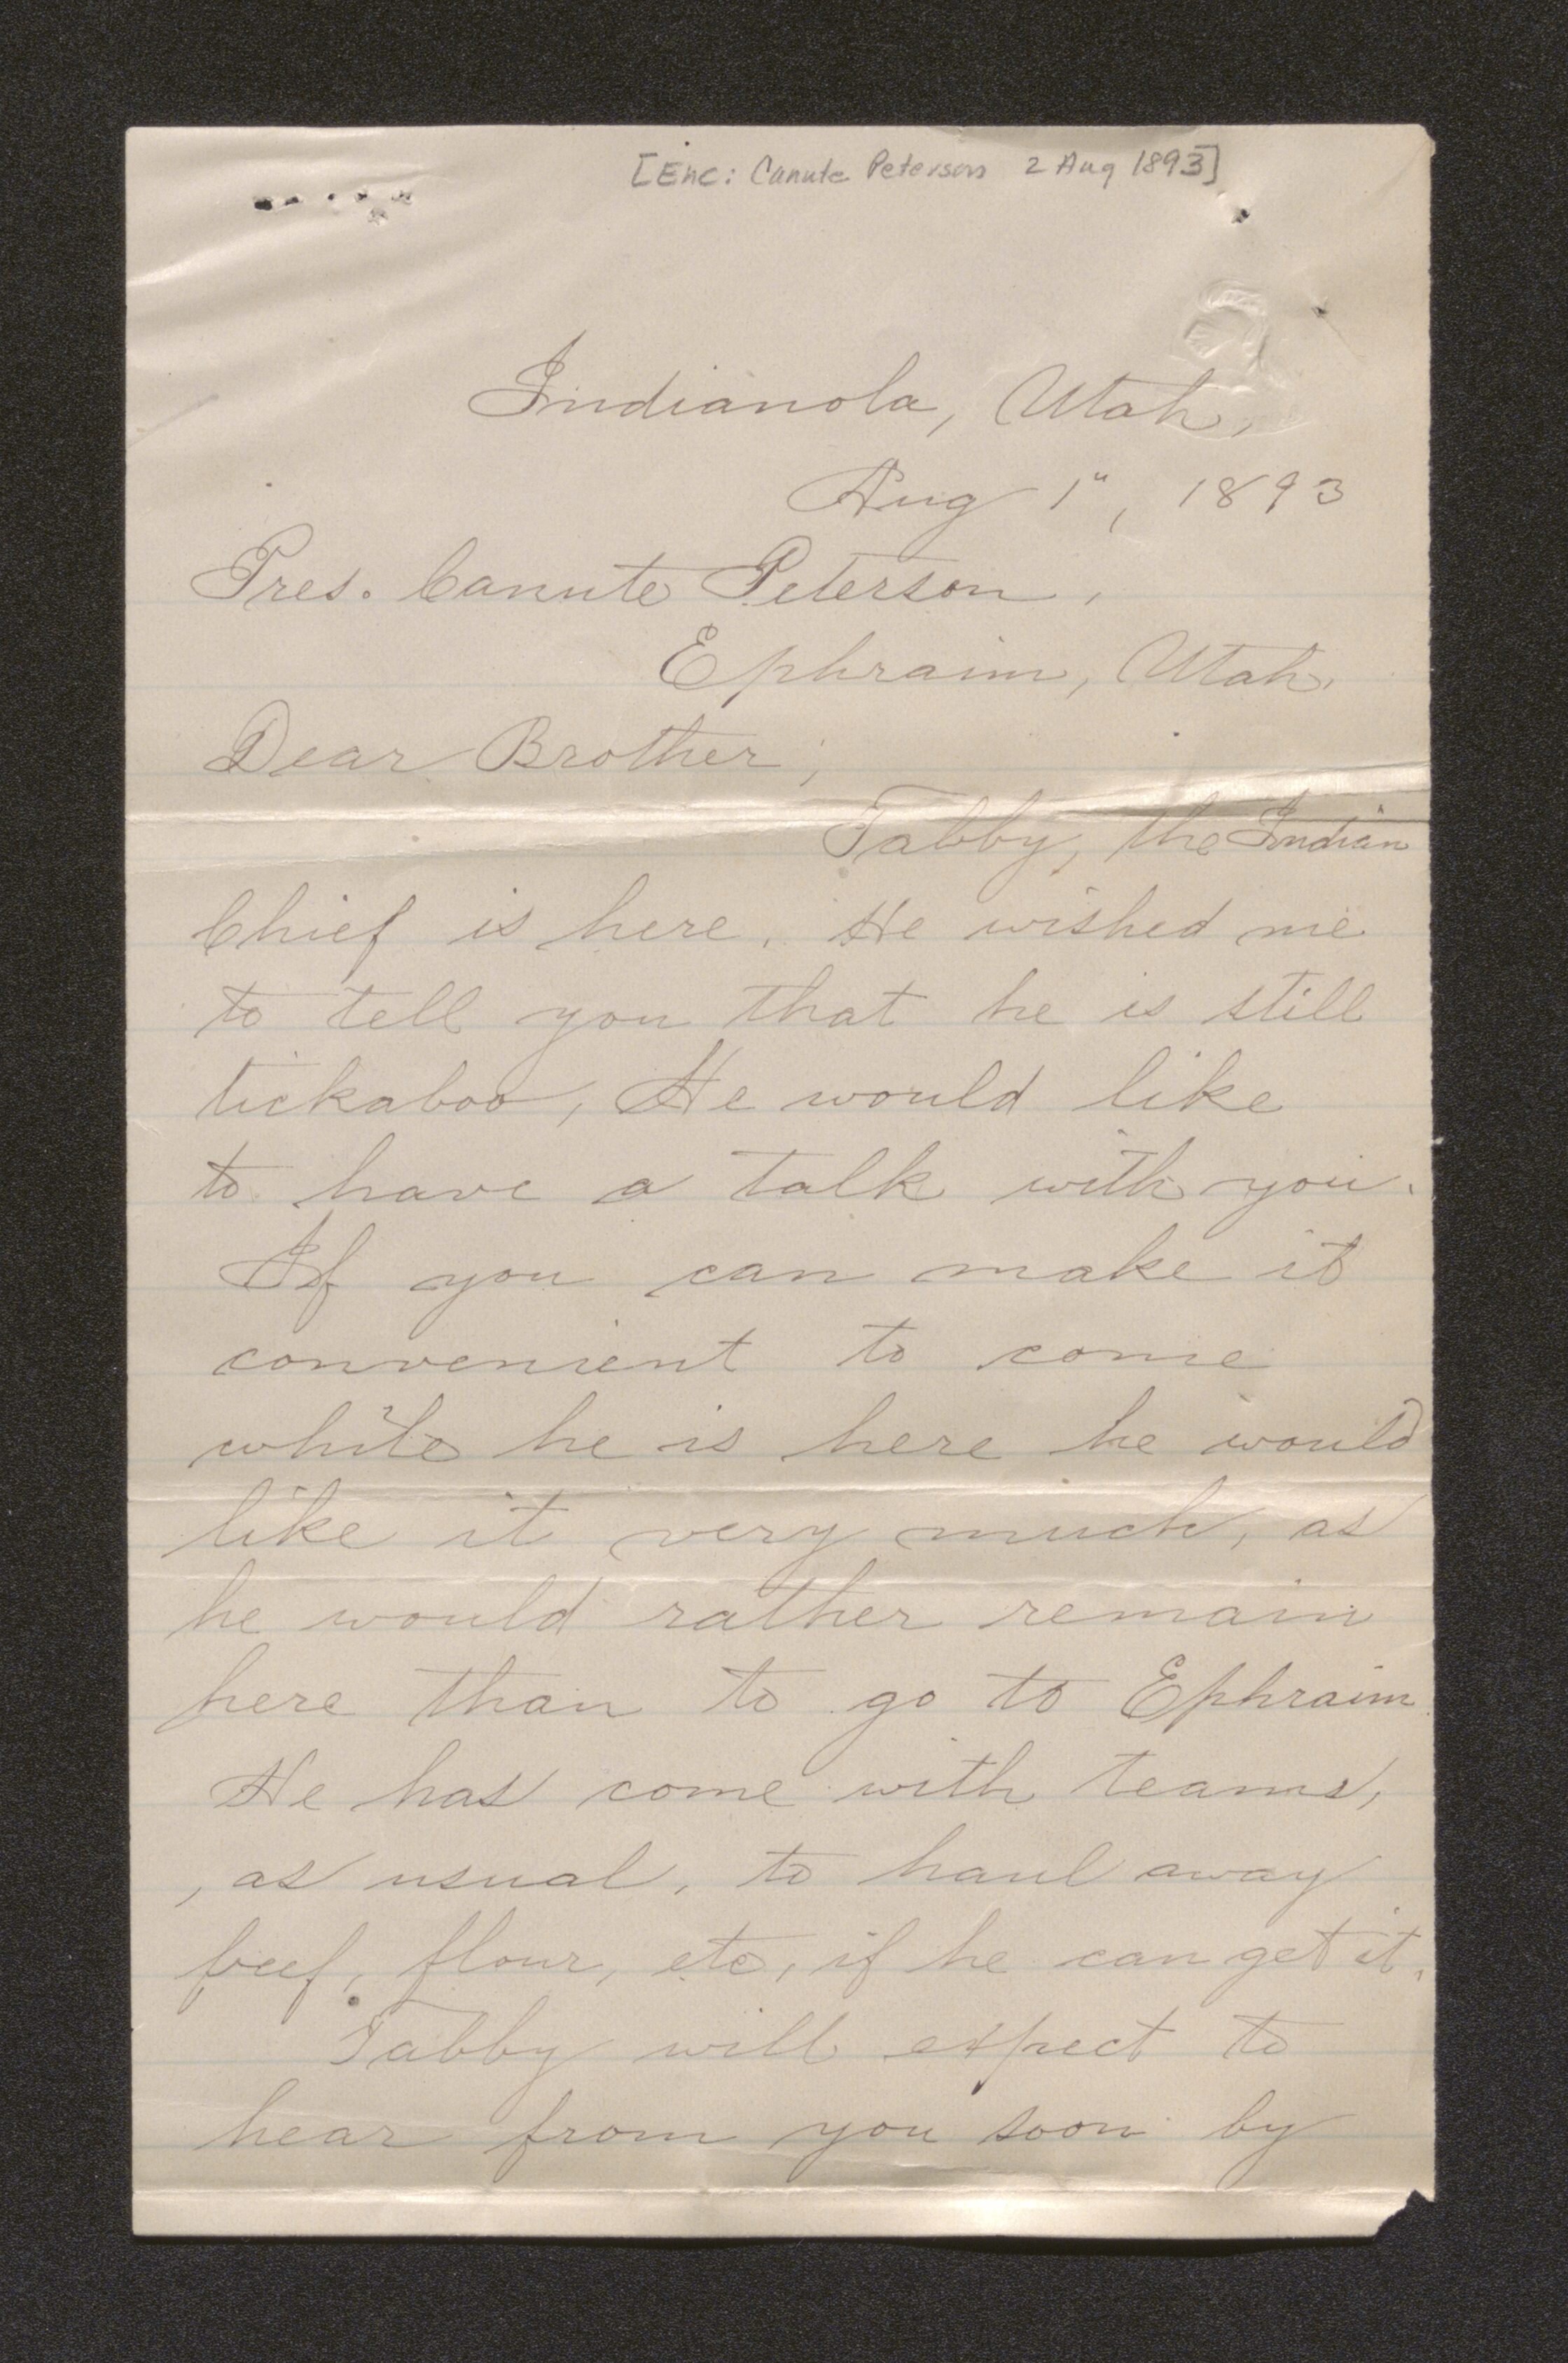 [Enc: Canute Peterson 2 Aug 1893]
Indianola, Utah,
Aug 1", 1893
Pres. Canute Peterson,
Ephraim, Utah.
Dear Brother;
Tabby, the Indian
Chief is here. He wished me
to tell you that he is still
tickaboo, He would like
to have a talk with you.
If you can make it
convenient to come
while he is here he would
like it very much, as
he would rather remain
here than to go to Ephraim.
He has come with teams,
, as usual, to haul away
beef, flour, etc, if he can get it.
Tabby will expect to
hear from you soon by